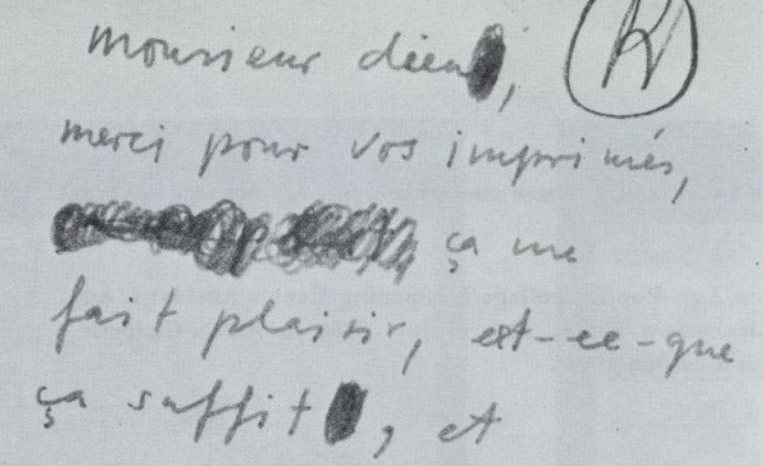 monsieur dieu,
merci pour vos imprimés,
ça me
fait plaisir, est-ce-que
ça suffit, et